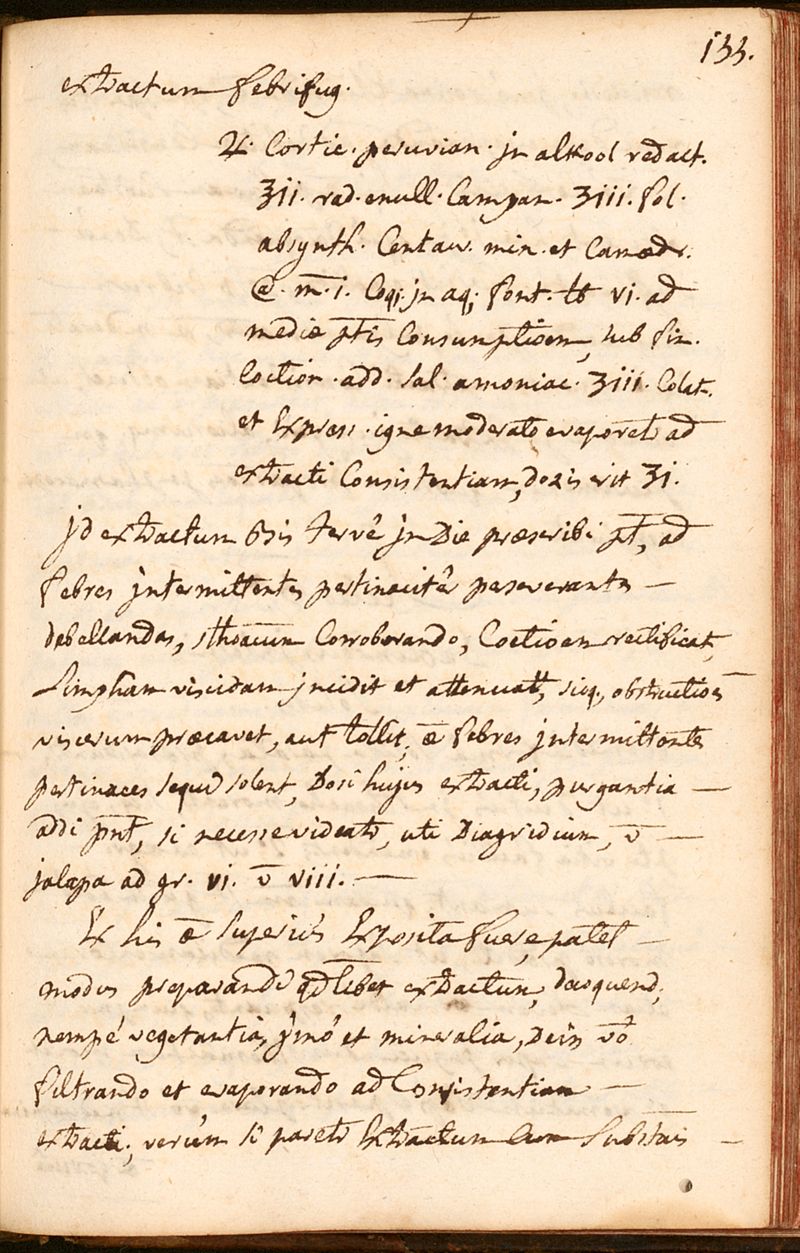 133.
extractum febrifug.
♃. Cortic. peruvian. jn alkool redact.
ʒii. rad. enull. Campan. ʒiii. fol.
absynth. Centaur. min. et Camædr.
@. m̄. i. Coq; jn aq; font. ℔ vi. ad
mediæ p̄tis Consumptioem, sub fin.
Coction. add. sal. amoniac. ʒiii. Colat.
et Express. igne moderato evaporet ad
extracti Consistentiam, dozis erit ʒi.
jd extractum bis tervê jn Die præscribi p̄t, ad
febres jntermittentes pertinacitêr perseverantes —
debellandas, sthoacum Corroborando, Coctioem rectificat,
Limpham viscidam jncidit et attenuat, sicq, obstructioēs
viscerum præcavet, aut tollit, æ febres jntermittentes
pertinaces sequi solent, Dosi hujus extracti, purgantia —
addi pn̄t, si necesse videatr, uti Diagridium, v̄ —
jalapa ad gr. vi. v̄ viii. —
Ex his æ superiús Exposita fuere, patet —
modus preparandi qdlibet extractum, decoquend;
nempé vegetantia, ymó et mineralia, Dein vō
filtrando et evaporando ad Consistentiam —
extracti; verúm si paretr Extractum Cum Substāis —